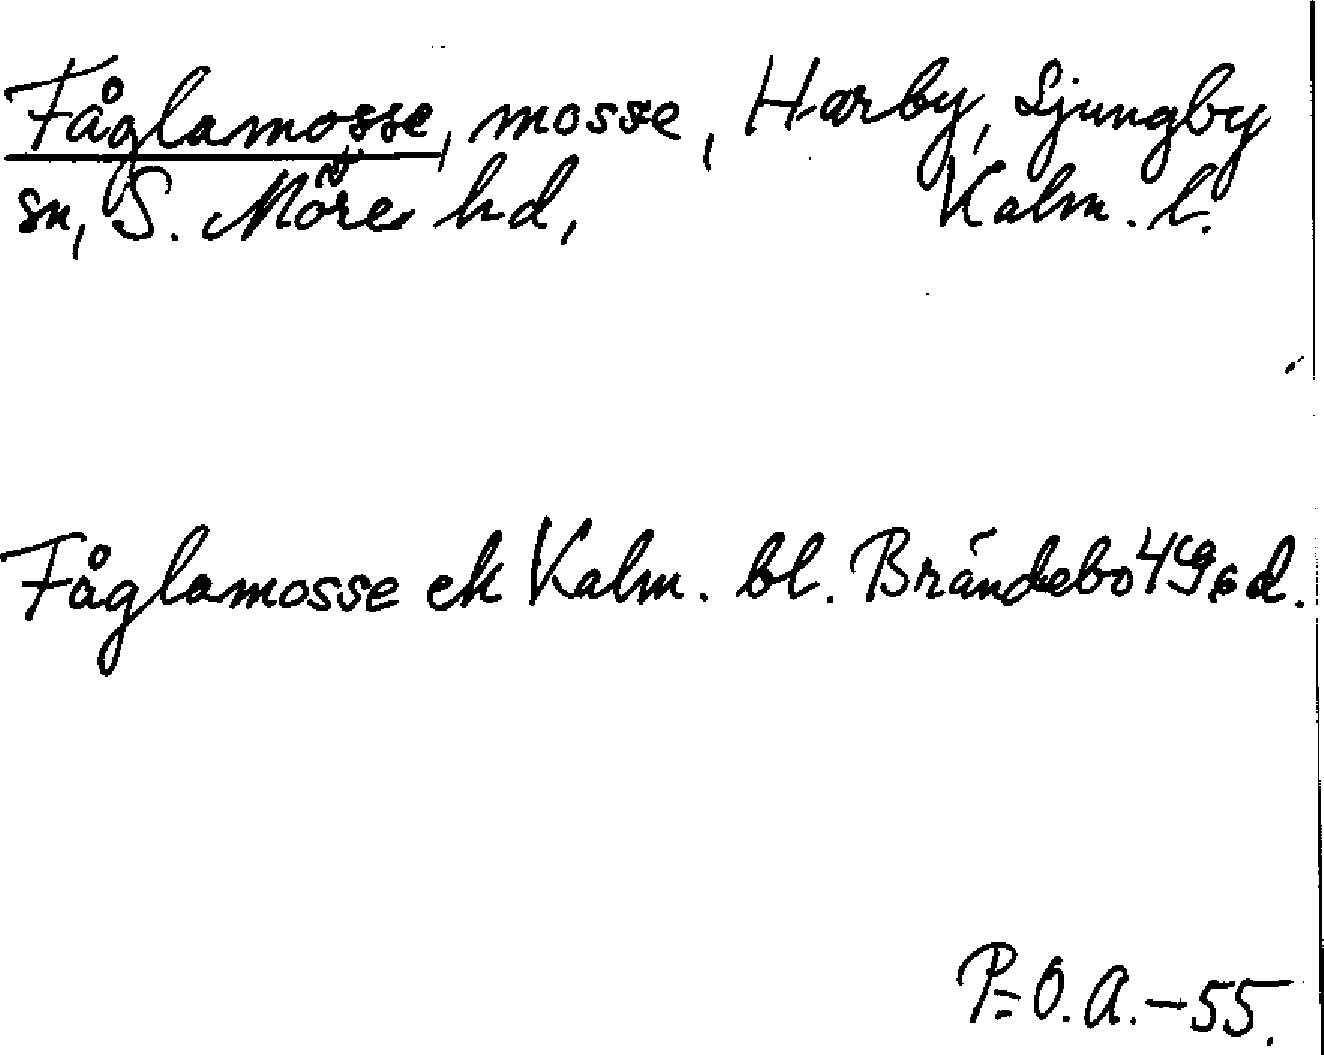 Fåglamosse, mosse, Harby, Ljungby
sn, S. Möre hd, Kalm. l.
Fåglamosse ek Kalm. bl. Brändebo 4G6d.
P-O.A.-55.